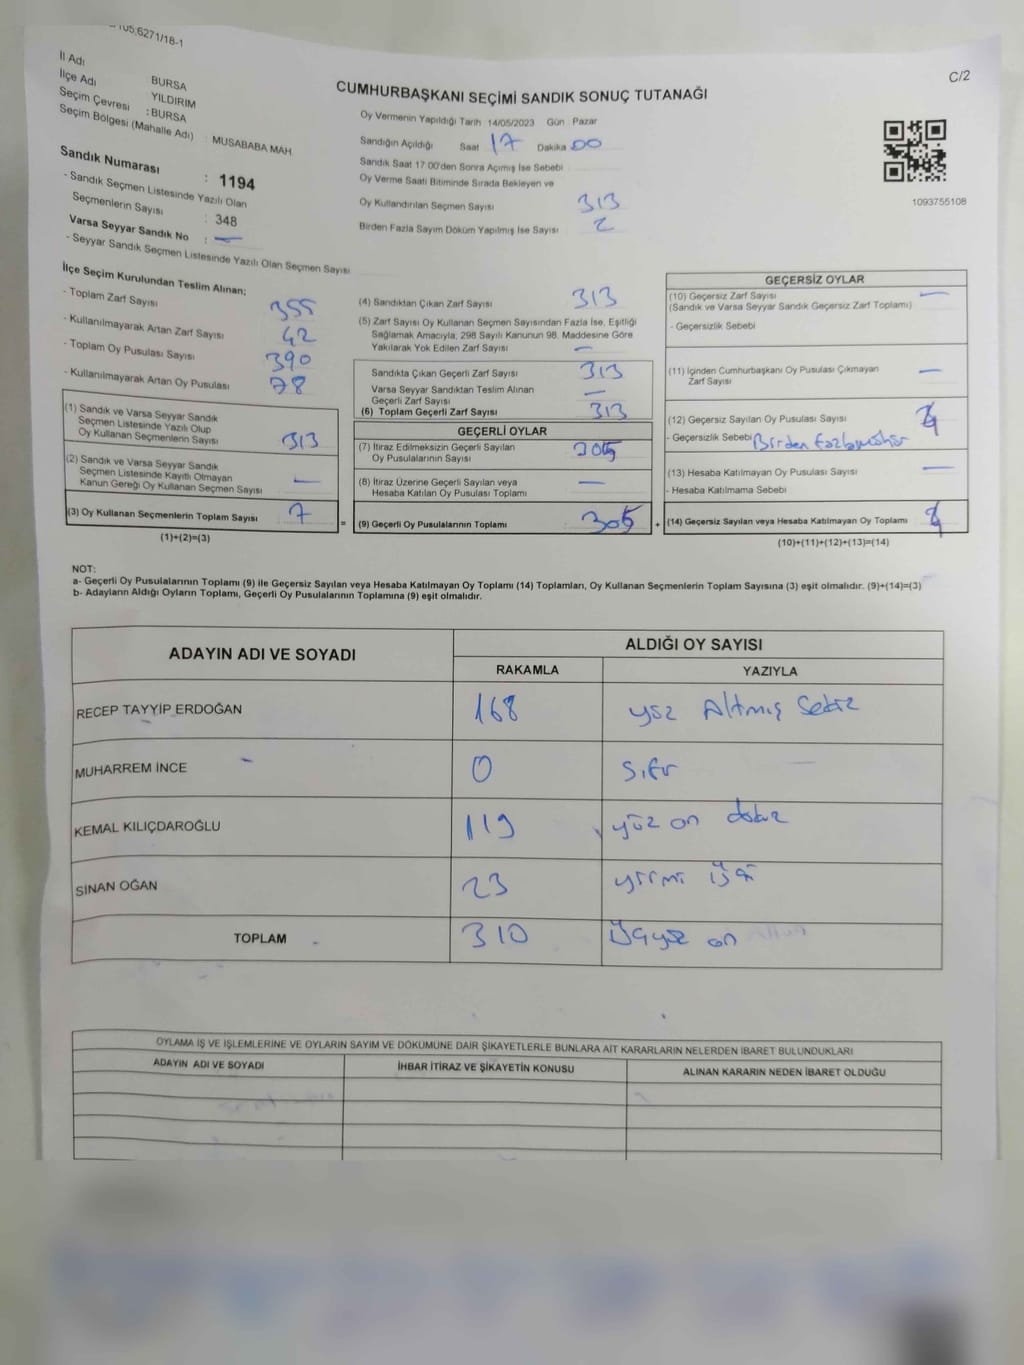 105.6271/18-1
C/2
İl Adı : BURSA
İlçe Adı : YILDIRIM
Seçim Çevresi : BURSA
Seçim Bölgesi (Mahalle Adı) : MUSABABA MAH
CUMHURBAŞKANI SEÇİMİ SANDIK SONUÇ TUTANAĞI
Oy Vermenin Yapıldığı Tarih 14/05/2023 Gün Pazar
Sandığın Açıldığı Saat 17 Dakika 00
Sandık Saat 17.00'den Sonra Açımış İse Sebebi
Oy Verme Saati Bitiminde Sırada Bekleyen ve
Oy Kullandırılan Seçmen Sayısı 313
Birden Fazla Sayım Döküm Yapılmış İse Sayısı 2
1093755108
Sandık Numarası : 1194
- Sandık Seçmen Listesinde Yazılı Olan
Seçmenlerin Sayısı : 348
Varsa Seyyar Sandık No : —
- Seyyar Sandık Seçmen Listesinde Yazılı Olan Seçmen Sayısı
İlçe Seçim Kurulundan Teslim Alınan;
- Toplam Zarf Sayısı 355
- Kullanılmayarak Artan Zarf Sayısı 42
- Toplam Oy Pusulası Sayısı 390
- Kullanılmayarak Artan Oy Pusulası 78
(1) Sandık ve Varsa Seyyar Sandık
Seçmen Listesinde Yazılı Olup
Oy Kullanan Seçmenlerin Sayısı 313
(2) Sandık ve Varsa Seyyar Sandık
Seçmen Listesinde Kayıtlı Olmayan
Kanun Gereği Oy Kullanan Seçmen Sayısı —
(3) Oy Kullanan Seçmenlerin Toplam Sayısı 7
(1)+(2)=(3)
(4) Sandıktan Çıkan Zarf Sayısı 313
(5) Zarf Sayısı Oy Kullanan Seçmen Sayısından Fazla İse, Eşitliği
Sağlamak Amacıyla, 298 Sayılı Kanunun 98. Maddesine Göre
Yakılarak Yok Edilen Zarf Sayısı —
Sandıkta Çıkan Geçerli Zarf Sayısı 313
Varsa Seyyar Sandıktan Teslim Alınan
Geçerli Zarf Sayısı —
(6) Toplam Geçerli Zarf Sayısı 313
GEÇERLİ OYLAR
(7) İtiraz Edilmeksizin Geçerli Sayılan
Oy Pusulalarının Sayısı
(8) İtiraz Üzerine Geçerli Sayılan veya
Hesaba Katılan Oy Pusulası Toplamı —
= (9) Geçerli Oy Pusulalarının Toplamı
GEÇERSİZ OYLAR
(10) Geçersiz Zarf Sayısı —
(Sandık ve Varsa Seyyar Sandık Geçersiz Zarf Toplamı)
- Geçersizlik Sebebi
(11) İçinden Cumhurbaşkanı Oy Pusulası Çıkmayan
Zarf Sayısı —
(12) Geçersiz Sayılan Oy Pusulası Sayısı
- Geçersizlik Sebebi Birden fazla mühür
(13) Hesaba Katılmayan Oy Pusulası Sayısı —
- Hesaba Katılmama Sebebi
+ (14) Geçersiz Sayılan veya Hesaba Katılmayan Oy Toplamı
(10)+(11)+(12)+(13)=(14)
NOT:
a- Geçerli Oy Pusulalarının Toplamı (9) ile Geçersiz Sayılan veya Hesaba Katılmayan Oy Toplamı (14) Toplamları, Oy Kullanan Seçmenlerin Toplam Sayısına (3) eşit olmalıdır. (9)+(14)=(3)
b- Adayların Aldığı Oyların Toplamı, Geçerli Oy Pusulalarının Toplamına (9) eşit olmalıdır.
ADAYIN ADI VE SOYADI
ALDIĞI OY SAYISI
RAKAMLA YAZIYLA
RECEP TAYYİP ERDOĞAN 168 yüz Altmış Sekiz
MUHARREM İNCE 0 Sıfır
KEMAL KILIÇDAROĞLU 119 yüz on dokuz
SİNAN OĞAN 23 yirmi üç
TOPLAM 310 Üçyüz on
OYLAMA İŞ VE İŞLEMLERİNE VE OYLARIN SAYIM VE DÖKÜMÜNE DAİR ŞİKAYETLERLE BUNLARA AİT KARARLARIN NELERDEN İBARET BULUNDUKLARI
ADAYIN ADI VE SOYADI İHBAR İTİRAZ VE ŞİKAYETİN KONUSU ALINAN KARARIN NEDEN İBARET OLDUĞU